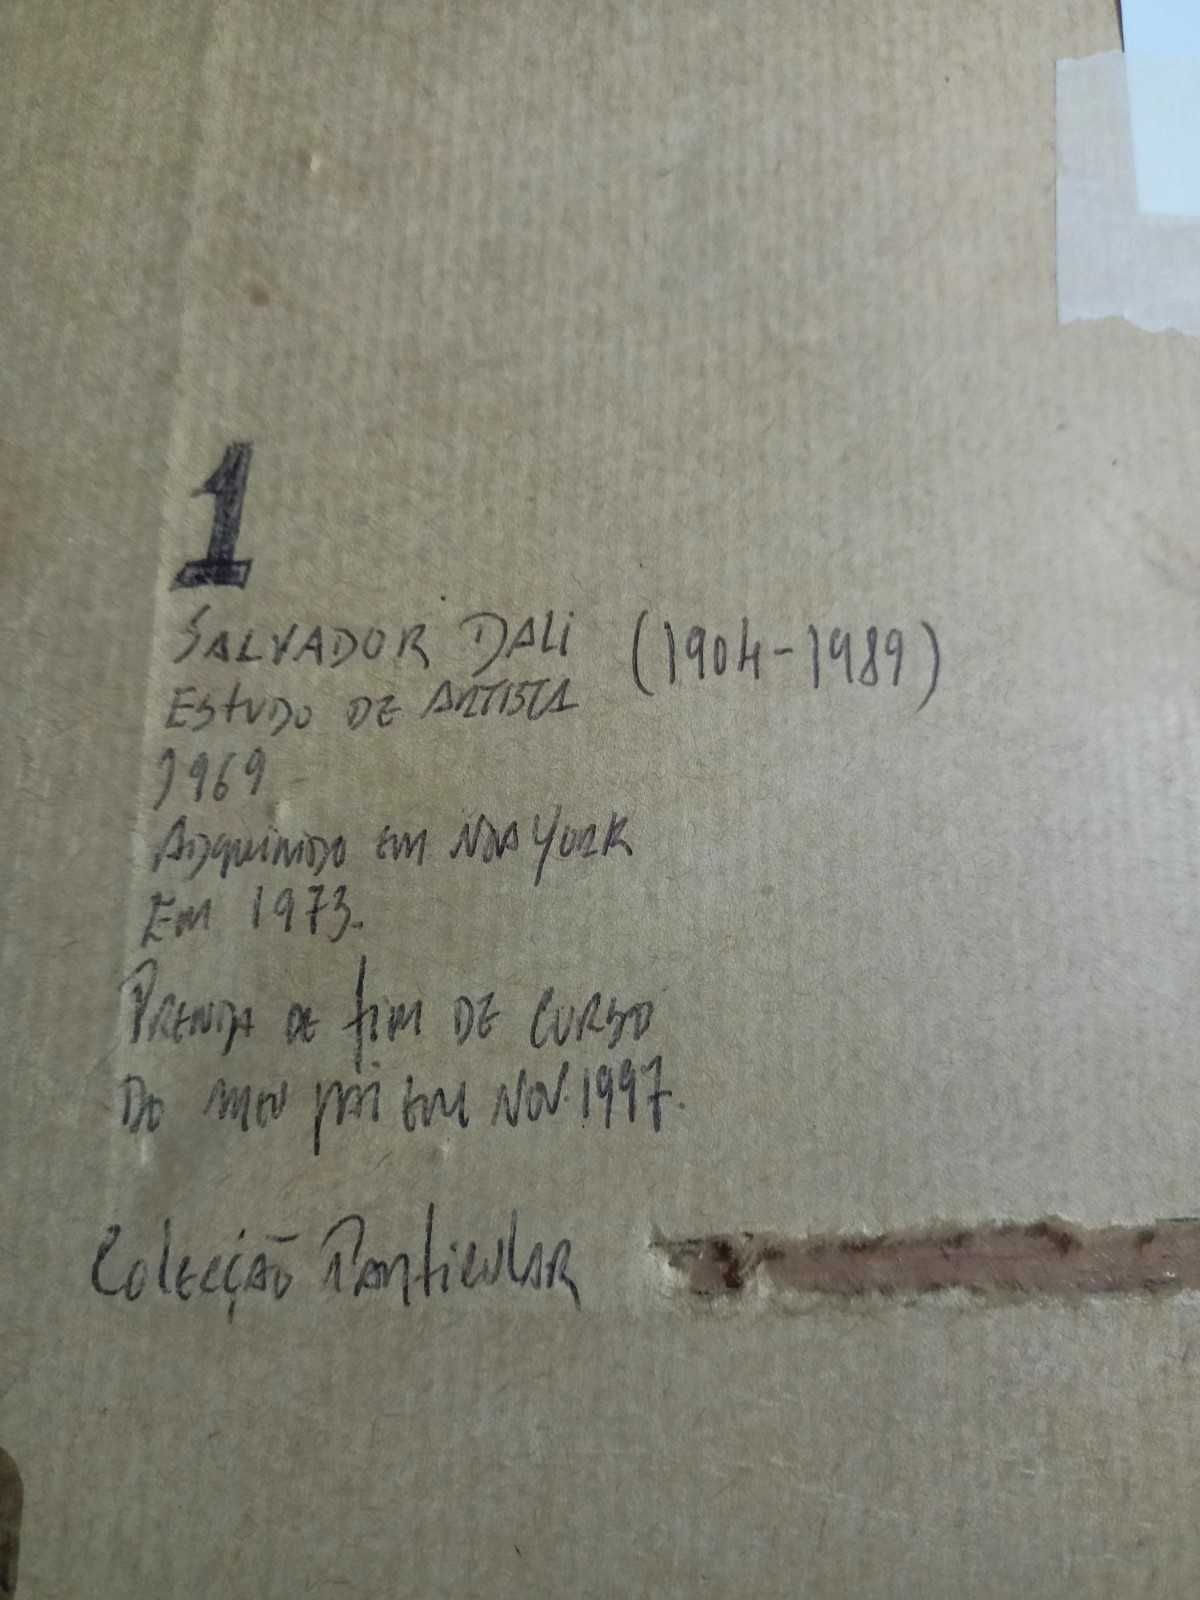 1
SALVADOR DALi (1904-1989)
EStUDO DE ARTISTA
1969
ADquiRiDO Em NOVA YORK
Em 1973.
PRENDA DE fim DE CURSO
DO MEU PAi Em NOV. 1997.
COLECÇÃO PARticuLAR